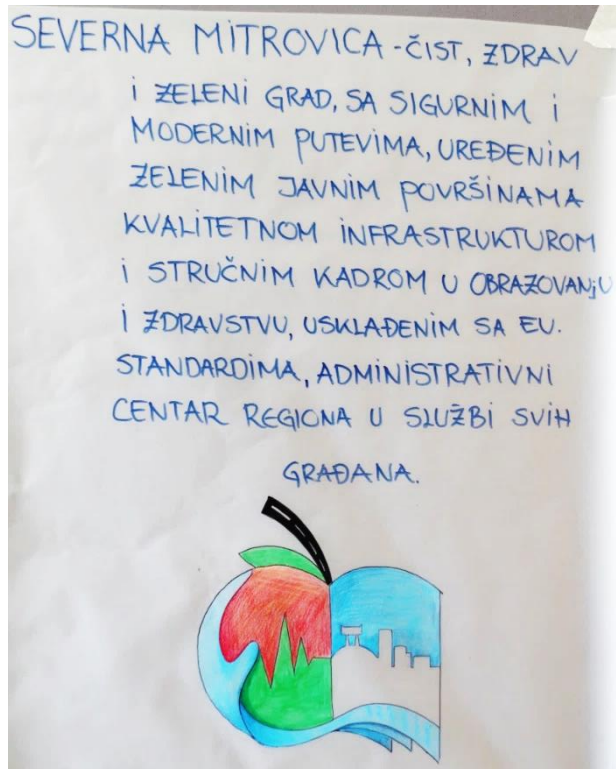 SEVERNA MITROVICA - ČIST, ZDRAV
I ZELENI GRAD, SA SIGURNIM I
MODERNIM PUTEVIMA, UREĐENIM
ZELENIM JAVNIM POVRŠINAMA
KVALITETNOM INFRASTRUKTUROM
I STRUČNIM KADROM U OBRAZOVANjU
I ZDRAVSTVU, USKLAĐENIM SA EU.
STANDARDIMA, ADMINISTRATIVNI
CENTAR REGIONA U SLUŽBI SVIH
GRAĐANA.